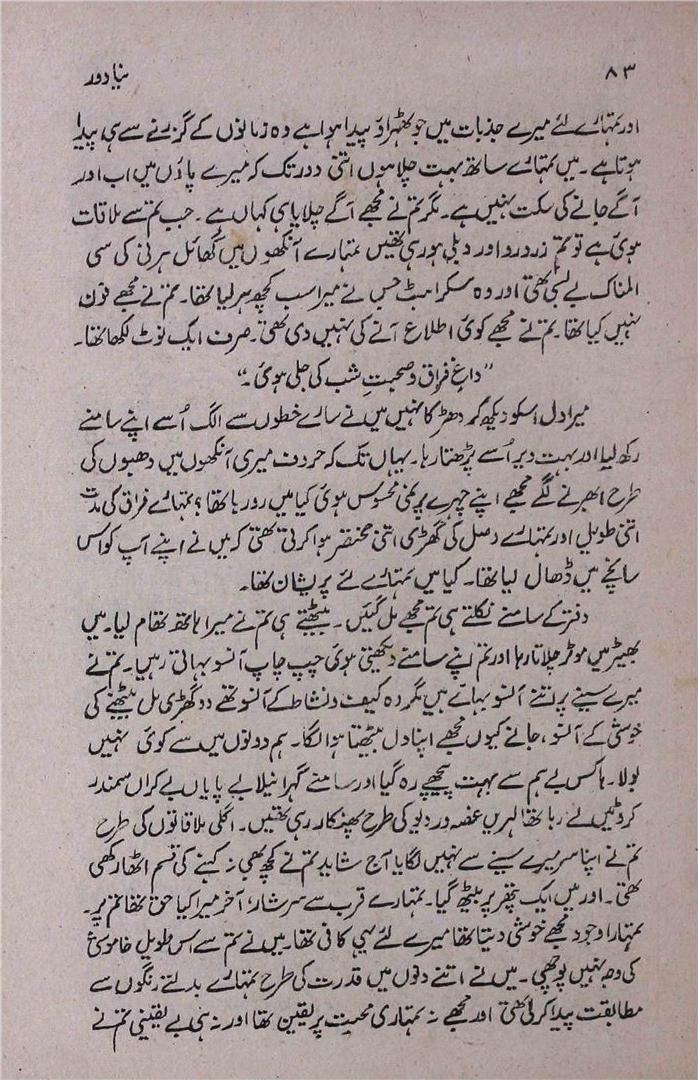 ۸۳ نیا دور
اور تمہارے لئے میرے جذبات میں جو ٹھہراؤ پیدا ہوا ہے وہ زمانوں کے گزرنے سے ہی پیدا
ہوتا ہے ۔ میں تمہارے ساتھ بہت چلا ہوں اتنی دور تک کہ میرے پاؤں میں اب اور
آگے جانے کی سکت نہیں ہے ۔ مگر تم نے مجھے آگے چلایا ہی کہاں ہے ۔ جب تم سے ملاقات
ہوئی ہے تو تم زرد رو اور دبلی ہو رہی تھیں تمہارے آنکھوں میں گھائل ہرنی کی سی
المناک بے بسی تھی اور وہ مسکراہٹ جس نے میرا سب کچھ ہر لیا تھا ۔ تم نے مجھے فون
نہیں کیا تھا ۔ تم نے مجھے کوئی اطلاع آنے کی نہیں دی تھی ۔ صرف ایک نوٹ لکھا تھا ۔
”داغِ فراق و صحبتِ شب کی جلی ہوئی ۔“
میرا دل اسکو دیکھ کر دھڑکا نہیں میں نے سارے خطوں سے الگ اُسے اپنے سامنے
رکھ لیا اور بہت دیر اُسے پڑھتا رہا ۔ یہاں تک کہ حروف میری آنکھوں میں دھبوں کی
طرح ابھرنے لگے مجھے اپنے چہرے پر نمی محسوس ہوئی کیا میں رو رہا تھا ؟ تمہارے فراق کی مدت
اتنی طویل اور تمہارے وصل کی گھڑی اتنی مختصر ہوا کرتی تھی کہ میں نے اپنے آپ کو اس
سانچے میں ڈھال لیا تھا ۔ کیا میں تمہارے لئے پریشان تھا ۔
دفتر کے سامنے نکلتے ہی تم مجھے مل گئیں ۔ بیٹھتے ہی تم نے میرا ہاتھ تھام لیا ۔ میں
بھیڑ میں موٹر چلاتا رہا اور تم اپنے سامنے دیکھتی ہوئی چپ چاپ آنسو بہاتی رہیں ۔ تم نے
میرے سینے پر اتنے آنسو بہائے ہیں مگر وہ کیف و نشاط کے آنسو تھے دو گھڑی مل بیٹھنے کی
خوشی کے آنسو ، جانے کیوں مجھے اپنا دل بیٹھتا ہوا لگا ۔ ہم دونوں میں سے کوئی نہیں
بولا ۔ ہاکس بے ہم سے بہت پیچھے رہ گیا اور سامنے گہرا نیلا بے پایاں بے کراں سمندر
کروٹیں لے رہا تھا لہریں غصہ ور دیو کی طرح پھنکار رہی تھیں ۔ اگلی ملاقاتوں کی طرح
تم نے اپنا سر میرے سینے سے نہیں لگایا آج شاید تم نے کچھ بھی نہ کہنے کی قسم اٹھا رکھی
تھی ۔ اور میں ایک پتھر پر بیٹھ گیا ۔ تمہارے قرب سے سرشار ، آخر میرا کیا حق تھا تم پر ۔
تمہارا وجود مجھے خوشی دیتا تھا میرے لئے یہی کافی تھا ۔ میں نے تم سے اس طویل خاموشی
کی وجہ نہیں پوچھی ۔ میں نے اتنے دنوں میں قدرت کی طرح تمہارے بدلتے رنگوں سے
مطابقت پیدا کر لی تھی اور مجھے نہ تمہاری محبت پر یقین تھا اور نہ ہی بے یقینی تم نے